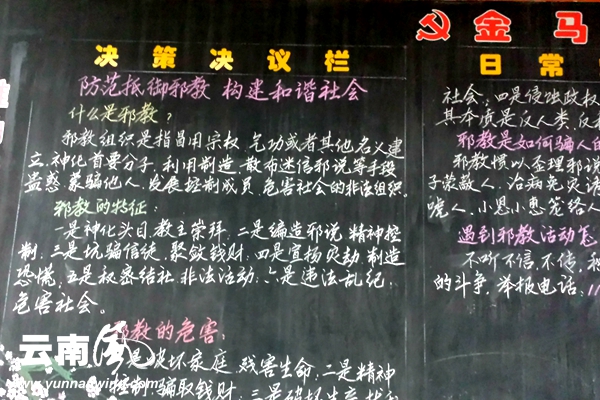 决策决议栏
防范抵御邪教 构建和谐社会
什么是邪教?
邪教组织是指冒用宗权、气功或者其他名义建
立、神化首要分子,利用制造、散布迷信邪说等手段
蛊惑、蒙骗他人,发展控制成员,危害社会的非法组织。
邪教的特征:
一是神化头目,教主崇拜,二是编造邪说,精神控
制,三是坑骗信徒,聚敛钱财,四是宣扬灾劫,制造
恐慌,五是秘密结社,非法活动,六是违法乱纪,
危害社会。
邪教的危害:
是破坏家庭,残害生命,二是精神
控制,骗取钱财,三是破坏生产
金马
日常
社会,四是侵蚀政权
其本质是反人类、反
邪教是如何骗人的
邪教惯以歪理邪说
子蒙蔽人,治病免灾诱
唬人,小恩小惠笼络人
遇到邪教活动怎
不听、不信、不传,
的斗争,举报电话:11
云南风
www.yunnanwing.com